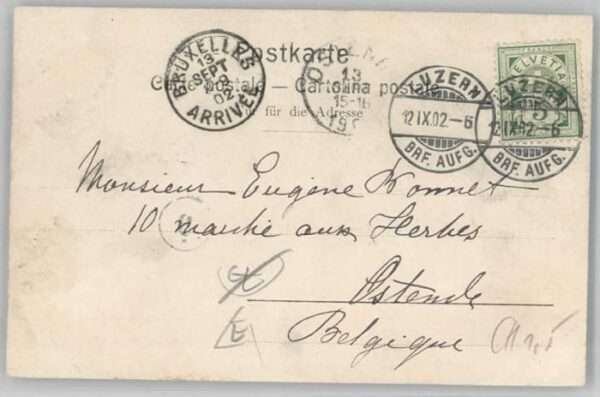 Postkarte
Carte postale — Cartolina postale
für die Adresse
BRUXELLES
13
SEPT
1902
ARRIVEE
13
15-16
LUZERN
12.IX.02.-6
BRF. AUFG.
LUZERN
12.IX.02.-6
BRF. AUFG.
HELVETIA
5
Monsieur Eugène Wonnet
10 marché aux Herbes
Ostende
Belgique
E